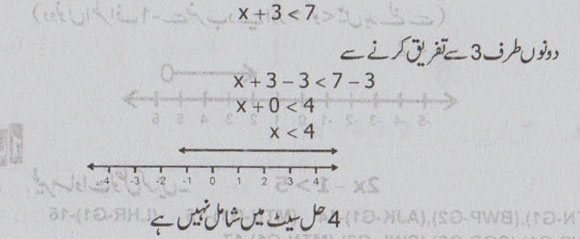 x + 3 < 7
دونوں طرف 3 سے تفریق کرنے سے
x + 3 − 3 < 7 − 3
x + 0 < 4
x < 4
-4 -3 -2 -1 0 1 2 3 4
4 حل سیٹ میں شامل نہیں ہے